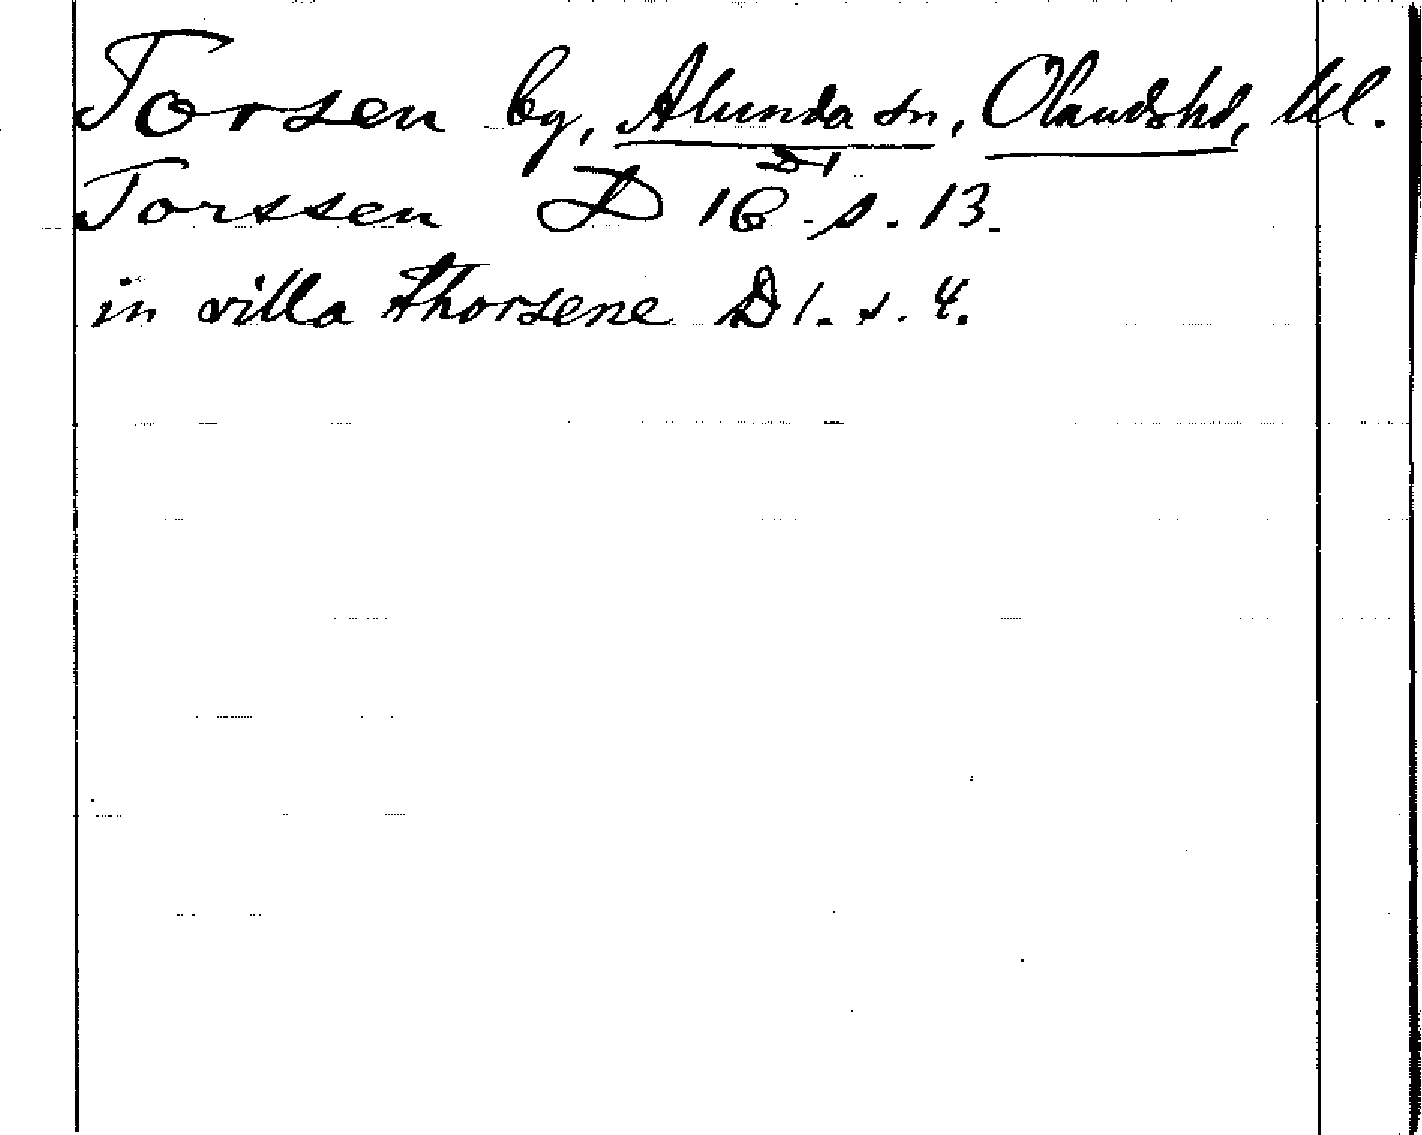 Torsen by, Alunda sn, Olandshd, Upl.
D 1
Torssen D 16 s. 13.
in villa Thorsene D 1. s. 4.